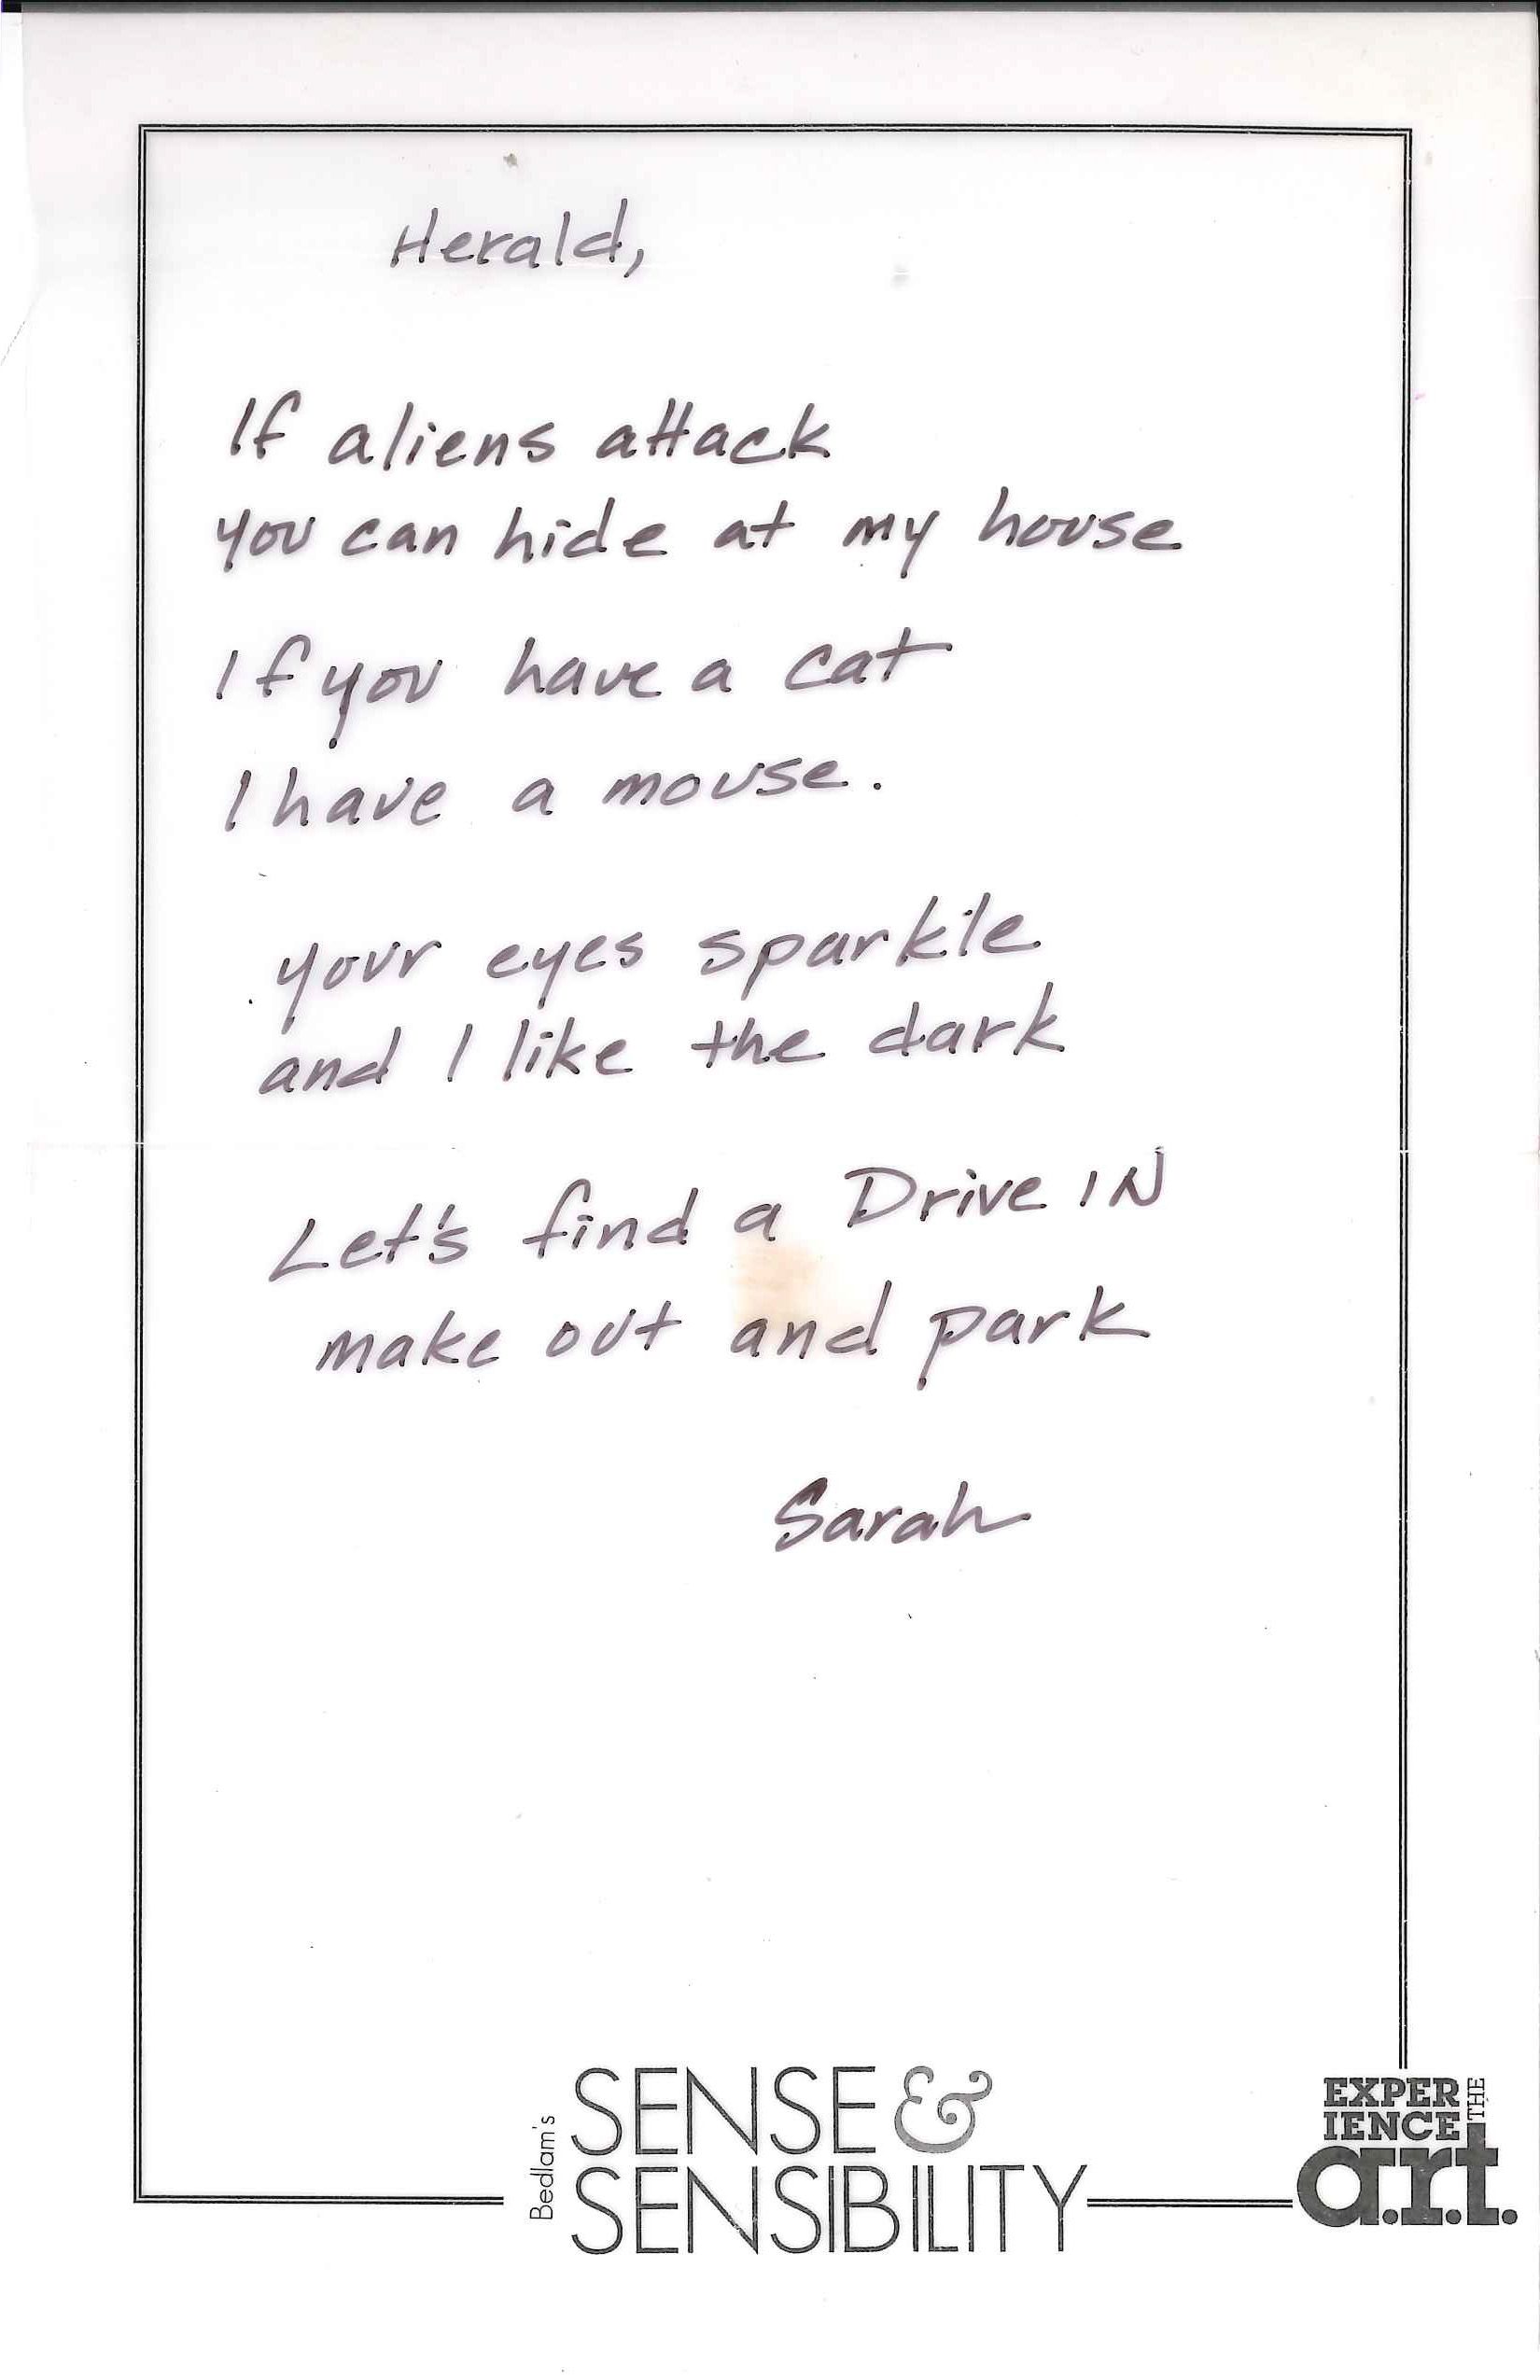 Herald,
If aliens attack
you can hide at my house
If you have a cat
I have a mouse.
your eyes sparkle
and I like the dark
Let's find a Drive IN
make out and park
Sarah
Bedlam's
SENSE &
SENSIBILITY
EXPER
IENCE
THE
a.r.t.